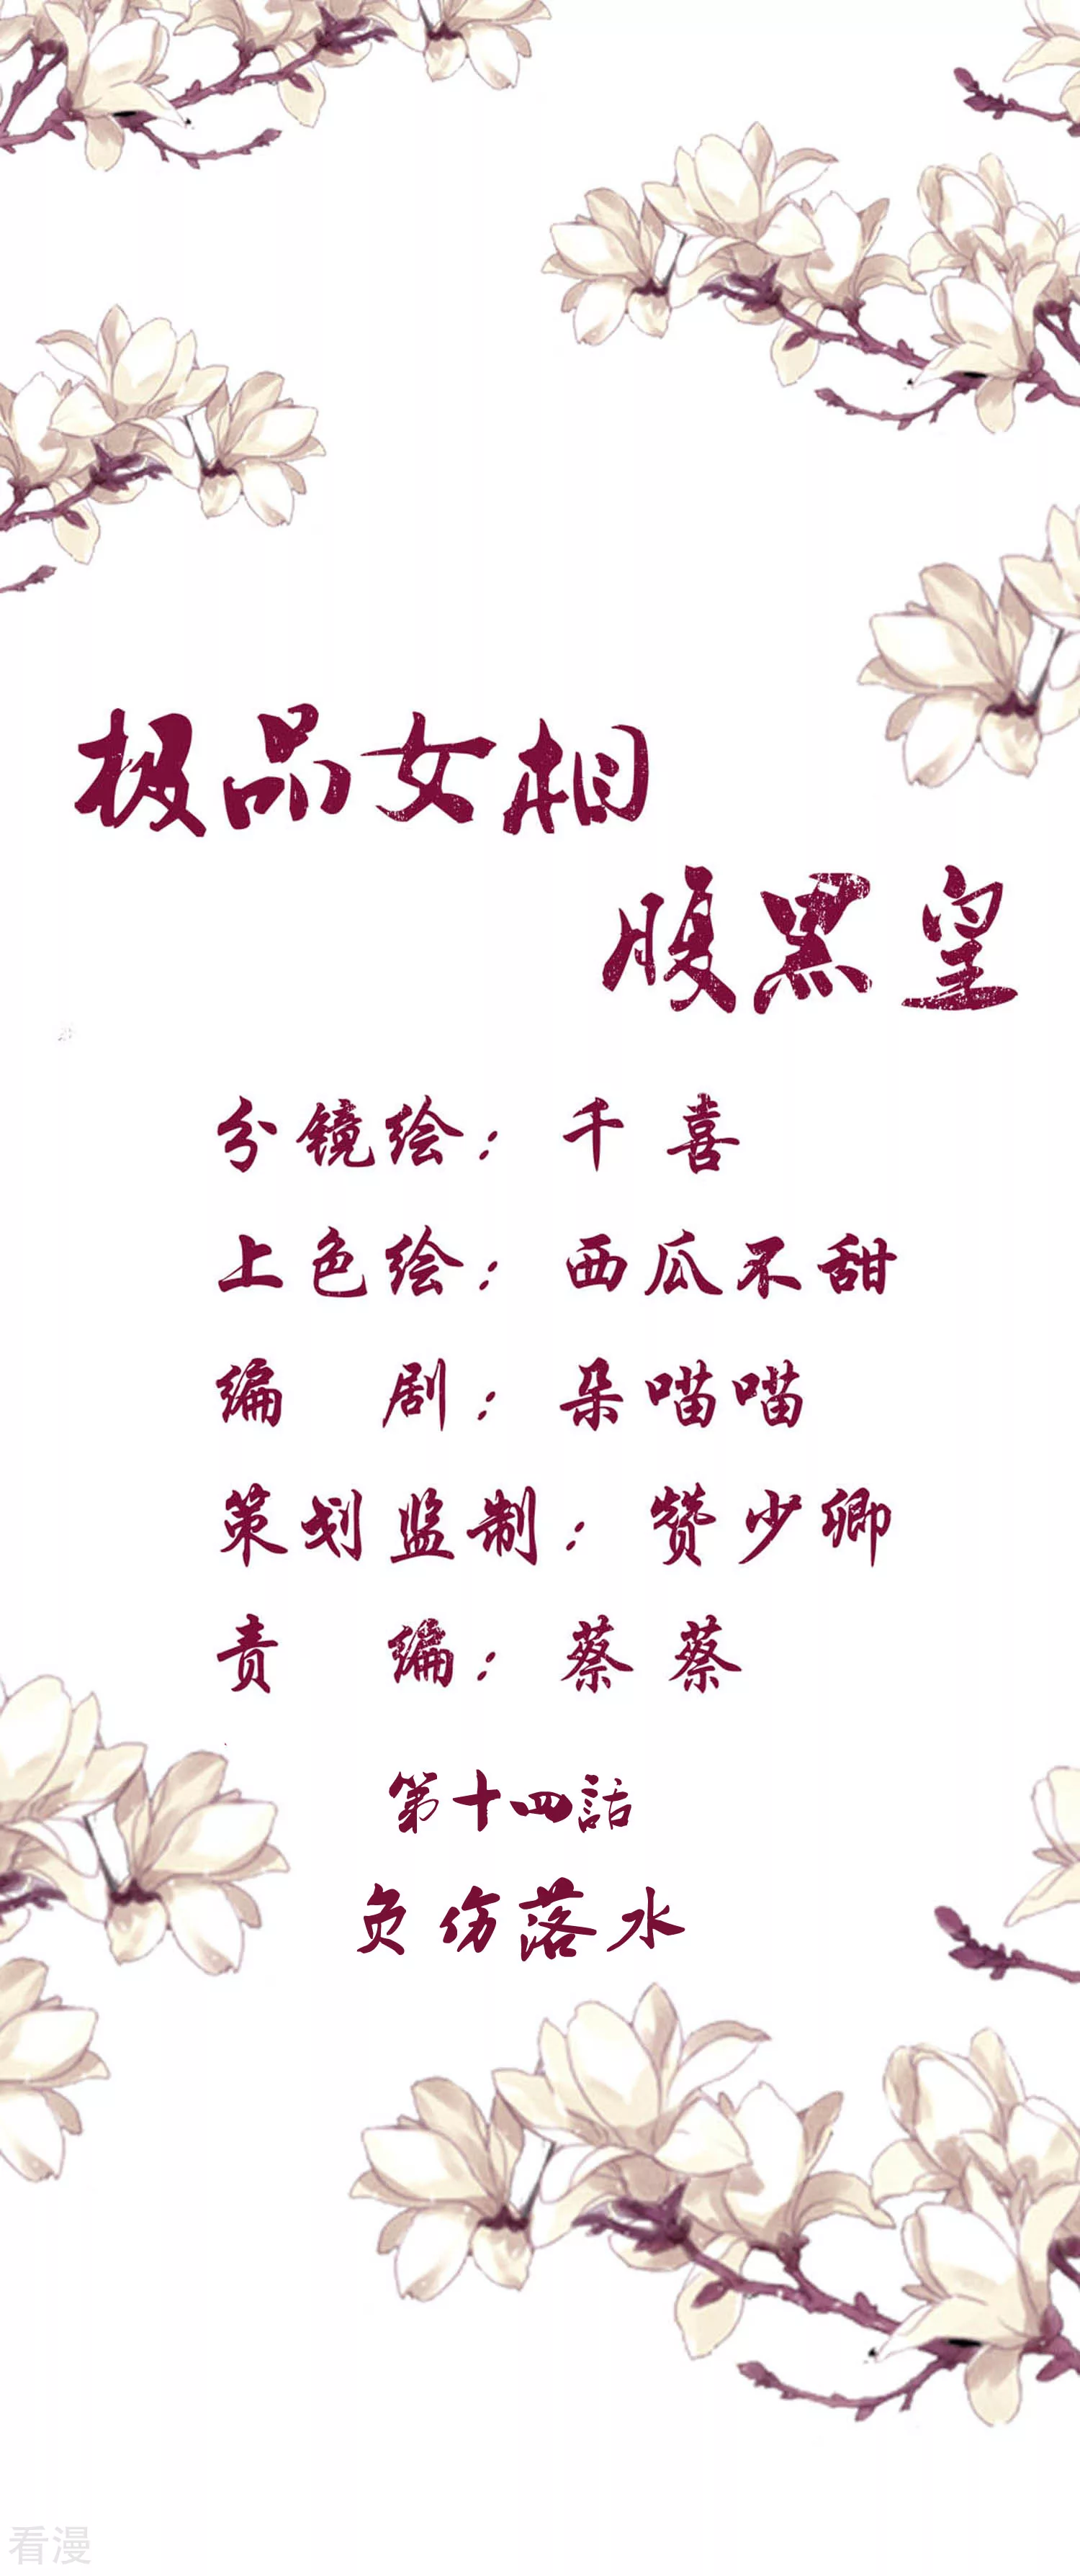 极品女相
腹黑皇
分镜绘：千喜
上色绘：西瓜不甜
编 剧：朵喵喵
策划监制：赞少卿
责 编：蔡蔡
第十四話
负伤落水
看漫